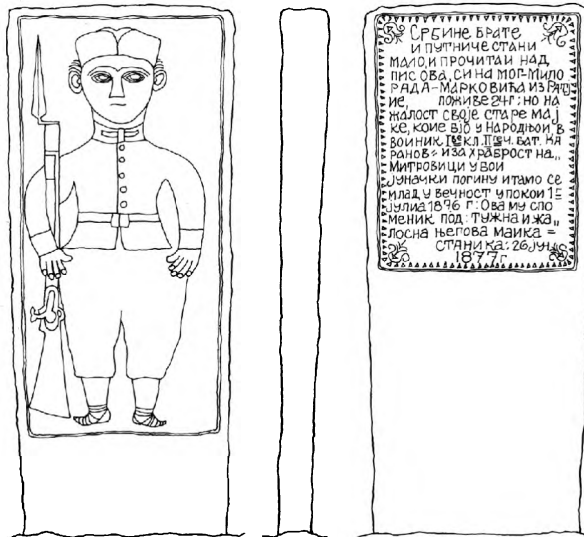 СРБИНЕ БРАТЕ
И ПУТНИЧЕ СТАНИ
МАЛО, И ПРОЧИТАИ НАД
ПИС ОВА, СИНА МОГ-МИЛО
РАДА-МАРКОВИЋА ИЗ
ИЕ, ПОЖИВЕ 24Г: НО НА
ЖАЛОСТ СВОЈЕ СТАРЕ МАЈ
КЕ, КОИЕ БИО У НАРОДЊОИ В
ВОИНИК I КЛ. II Ч. БАТ. КА
РАНОВ: ИЗА ХРАБРОСТ НА,,
МИТРОВИЦИ У ВОИ
ЈУНАЧКИ ПОГИНУ И ТАМО СЕ
МЛАД У ВЕЧНОСТ УПОКОИ 1
ЈУЛИА 1876 Г: ОВА МУ СПО
МЕНИК ПОД: ТУЖНА И ЖА,,
ЛОСНА ЊЕГОВА МАИКА =
СТАНИКА: 26 ЈУЛ
1877 Г